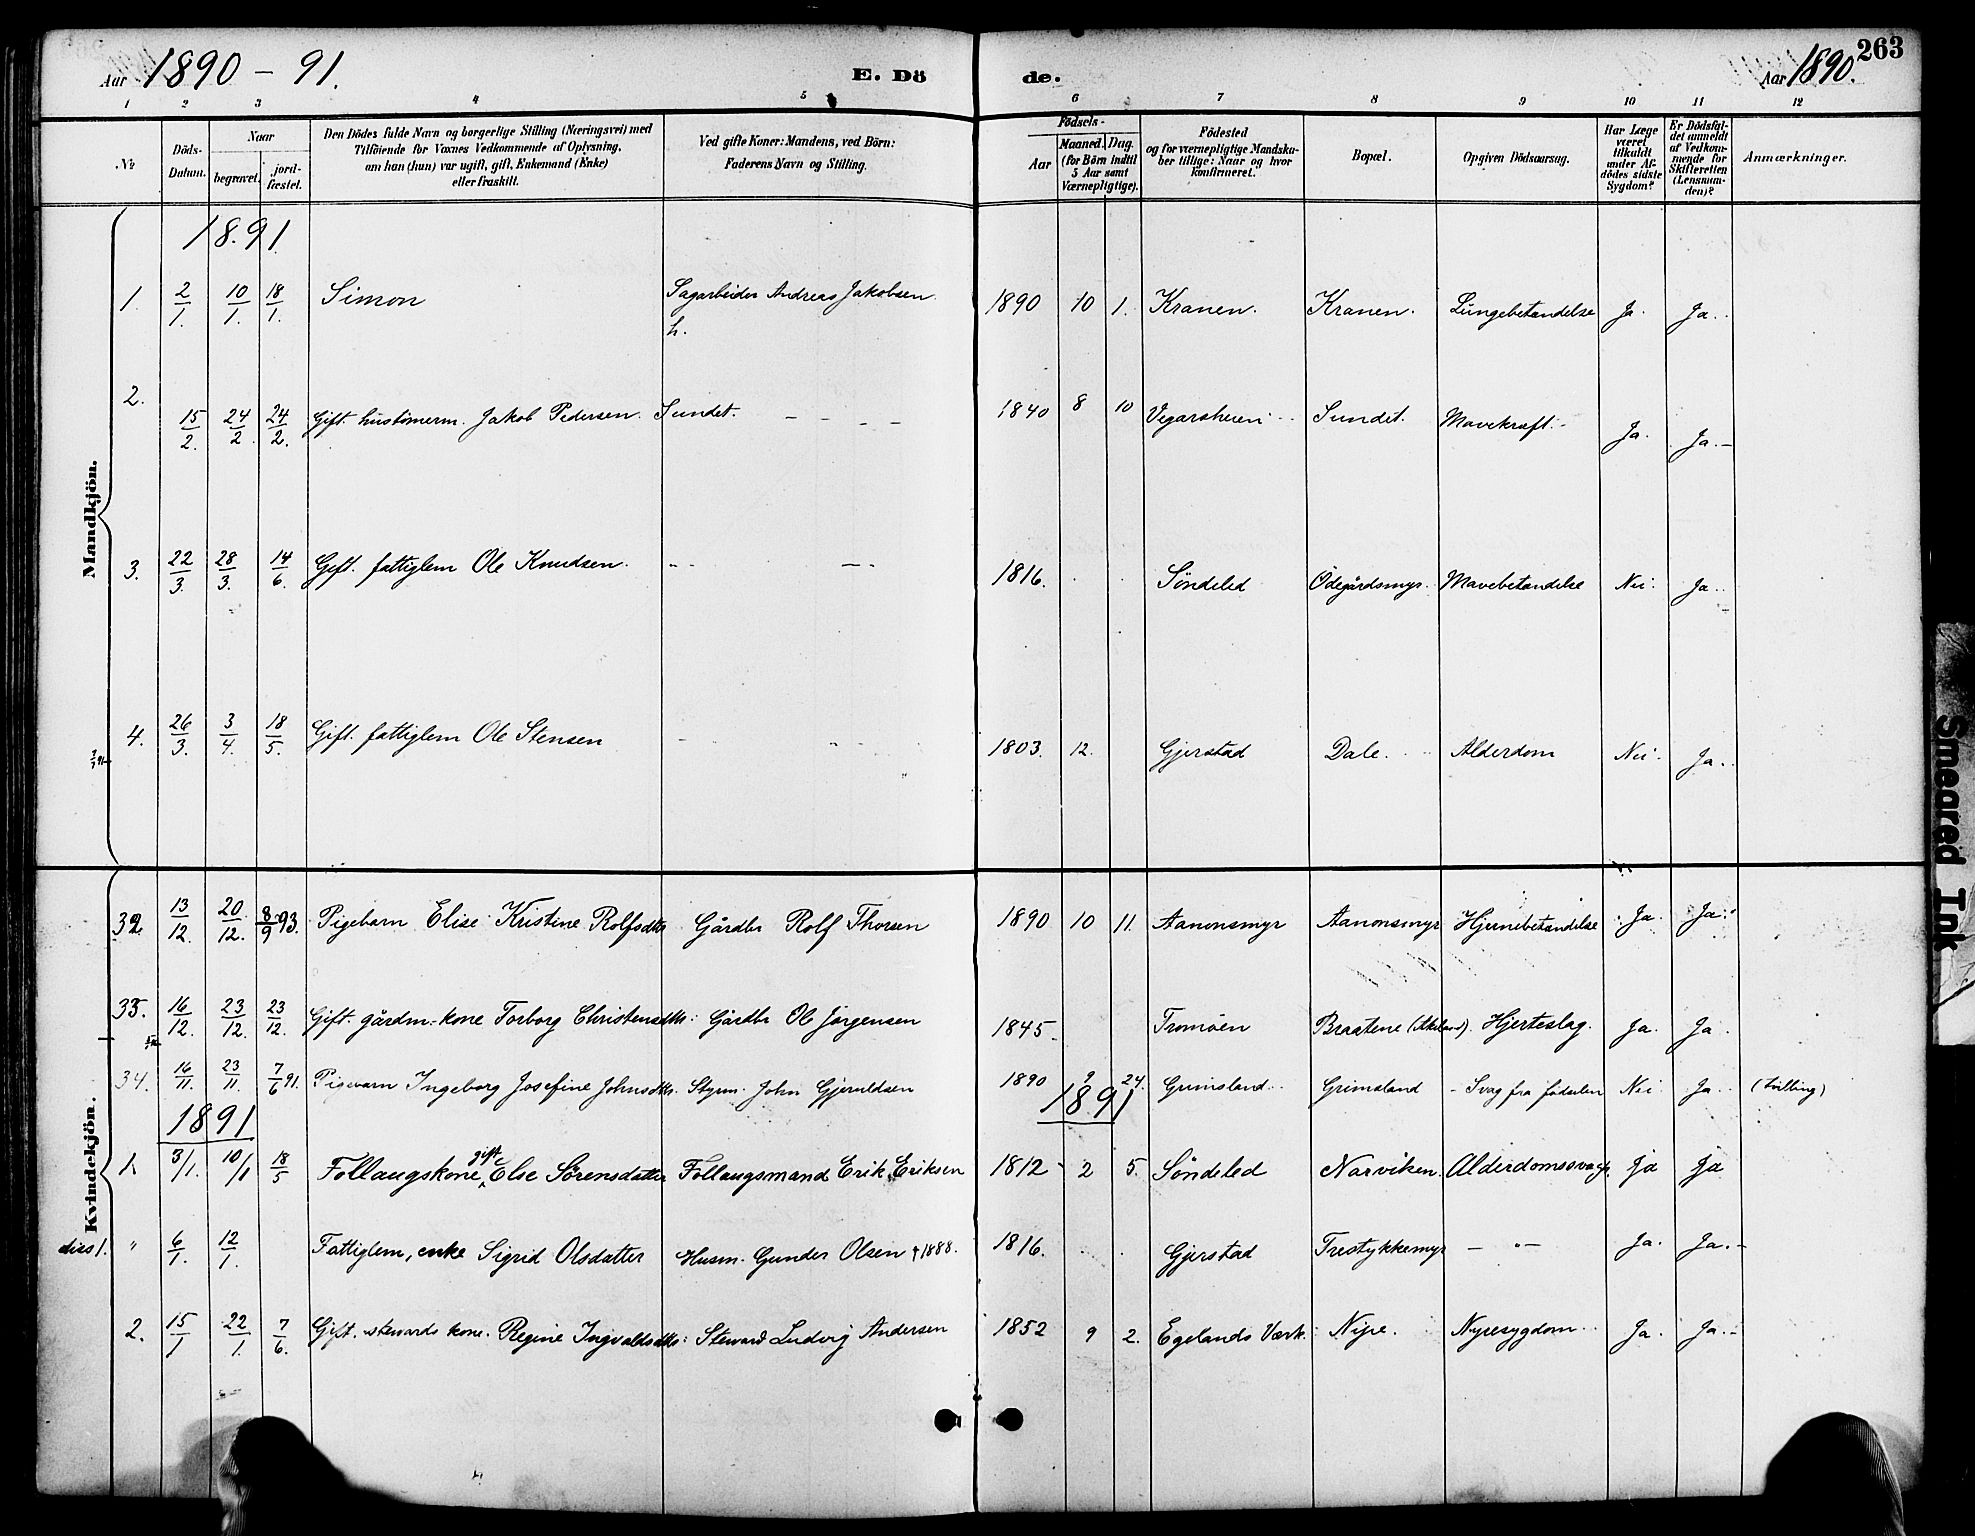 Aar 1890 - 91. E. Dö de. Aar 1890. 263
1 2 3 4 5 6 7 8 9 10 11 12
№
Döds-Datum.
Naar
begravet.
jord-fæstet.
Den Dödes fulde Navn og borgerlige Stilling (Næringsvei) med
Tilföiende for Voxnes Vedkommende af Oplysning,
om han (hun) var ugift, gift, Enkemand (Enke)
eller fraskilt.
Ved gifte Koner: Mandens, ved Börn:
Faderens Navn og Stilling.
Födsels-
Aar
Maaned. Dag.
(for Börn indtil
5 Aar samt
Værnepligtige).
Födested
og for værnepligtige Mandska-
ber tillige: Naar og hvor
konfirmeret.
Bopæl.
Opgiven Dödsaarsag.
Har Læge
været
tilkaldt
under Af-
dödes sidste
Sygdom?
Er Dödsfal-
det anmeldt
af Vedkom-
mende for
Skifteretten
(Lensman-
den)?
Anmærkninger.
Mandkjön.
1891
1. 2/1. 10/1. 18/1. Simon Sagarbeider Andreas Jakobsen 1890 10 1. Kranen. Kranen. Lungebetændelse Ja. Ja.
h.
2. 15/2. 24/2. 24/2. Gift. hustömerm. Jakob Pedersen. Sundet. - - - - 1840 8 10 Vegarsheien Sundet. Mavekræft. Ja. Ja.
3. 22/3. 28/3. 14/6. Gift. fattiglem Ole Knudsen. - - - - 1816. Söndeled Ödegårdsmyr. Mavebetændelse Nei. Ja.
4. 26/3. 3/4. 18/5. Gift. fattiglem Ole Stensen - 1803. 12. Gjerstad Dale. Alderdom Nei. Ja.
Kvindekjön.
32. 13/12. 20/12. 8/9 93. Pigebarn Elise Kristine Rolfsdtr. Gårdbr Rolf Thorsen 1890 10 11. Aanonsmyr Aanonsmyr Hjernebetændelse Ja. Ja.
33. 16/12. 23/12. 23/12. Gift. gårdm.-kone Torborg Christensdtr: Gårdbr Ole Jörgensen 1845. Tromöen Braatene (Akeland). Hjerteslag. Ja. Ja
34. 16/11. 23/11. 7/6 91. Pigebarn Ingeborg Josefine Johnsdtr. Styrm. John Gjeruldsen 1890 9 24. Grimsland Grimsland - Svag fra födselen Nei Ja. (tvilling)
1891 1891
1. 3/1. 10/1 18/5 Follaugskone, gift Else Sörensdatter Follaugsmand Erik Eriksen 1812 2 5. Söndeled Narviken. Alderdomssvagh. Ja Ja
diss 1. " 6/1. 12/1. Fattiglem, enke Sigrid Olsdatter Husm. Gunder Olsen † 1888. 1816. Gjerstad Trestykkemyr - " - Ja. Ja. -
2. 15/1 22/1. 7/6. Gift. stewards kone. Regine Ingvaldsdtr: Steward Ludvig Andersen 1852 9 2. Egelands Værk. Nipe. Nyresygdom Ja. Ja. -
Smeared Ink